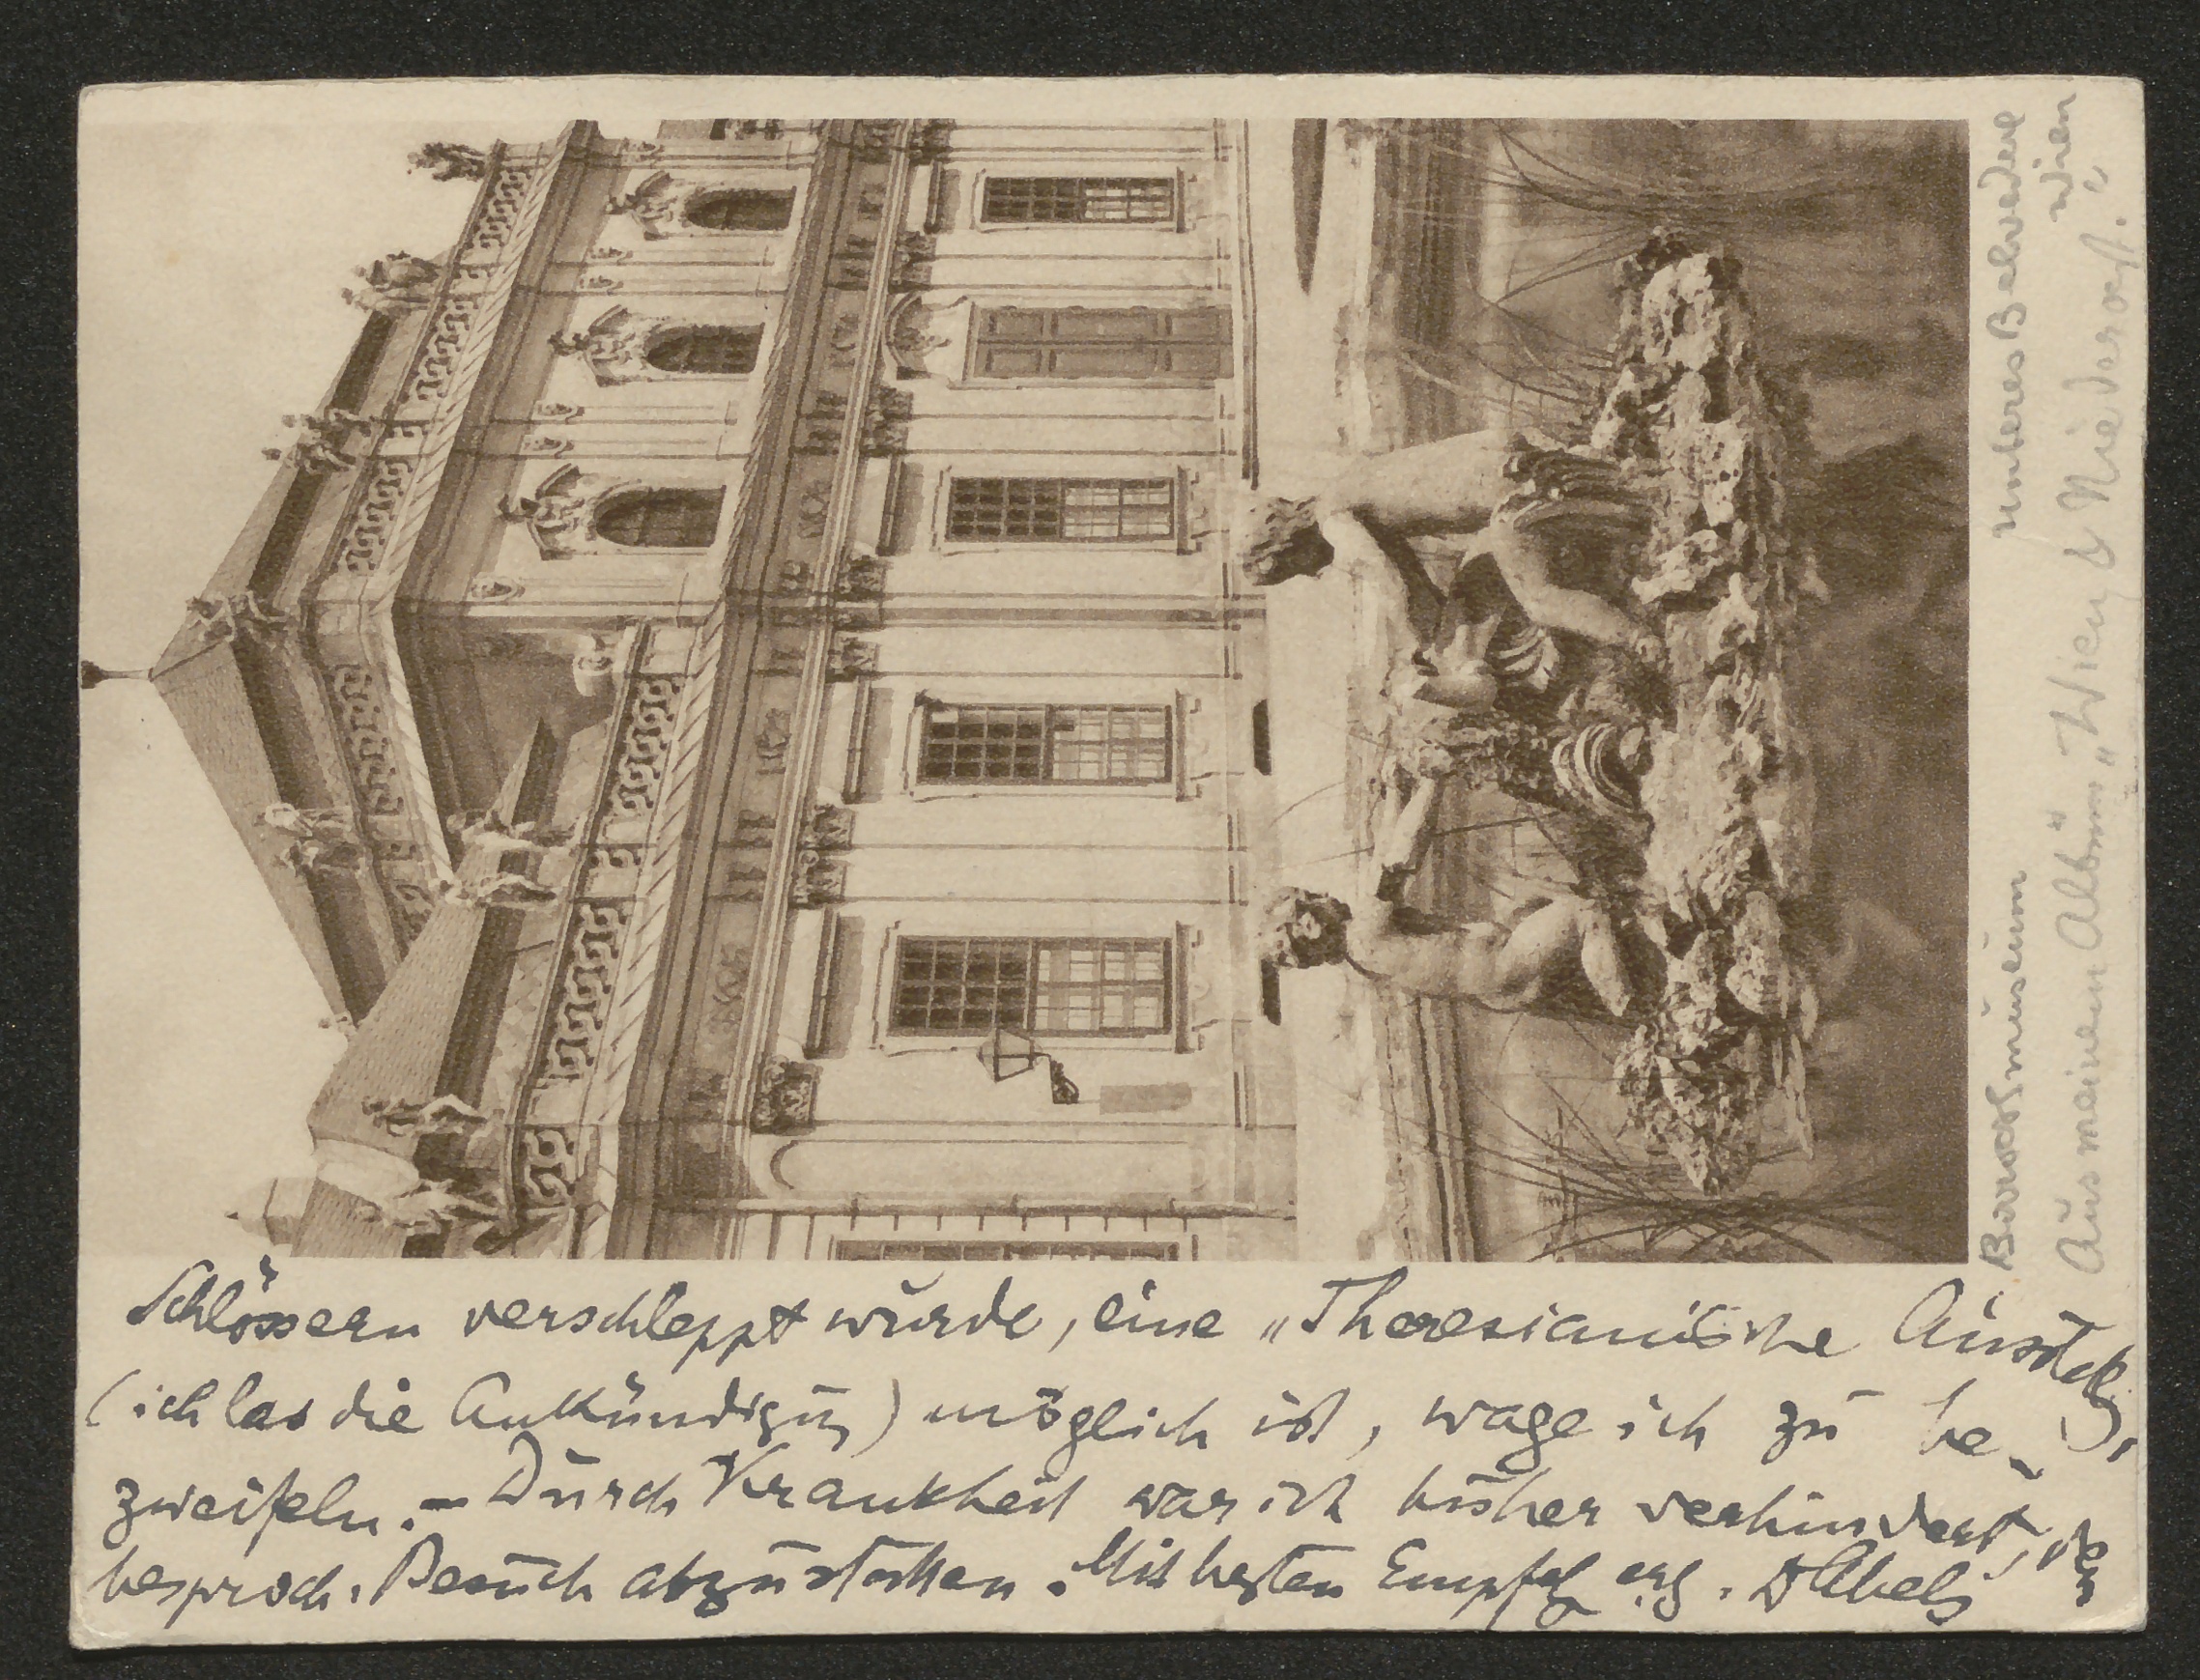 Schlössern verschleppt wurde, eine „Theresianische Ausstellg.
(ich las die Ankündigung) möglich ist, wage ich zu be-
zweifeln. – Durch Krankheit war ich bisher verhindert, den
besproch. Besuch abzustatten. Mit besten Empfhlg erg.
Barockmuseum unteres Belvedere
Wien
Aus meinem Album „Wien & Niederöst."